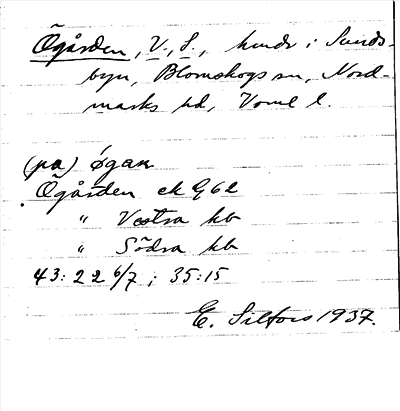 Ögården, V., S., hmdr i Sunds-
byn, Blomskogs sn, Nord-
marks hd, Vrml l.
(pa) øgan
Ögården ek G62
" Västra kb
" Södra kb
43:22 6/7; 35:15
E. Silfors 1937.